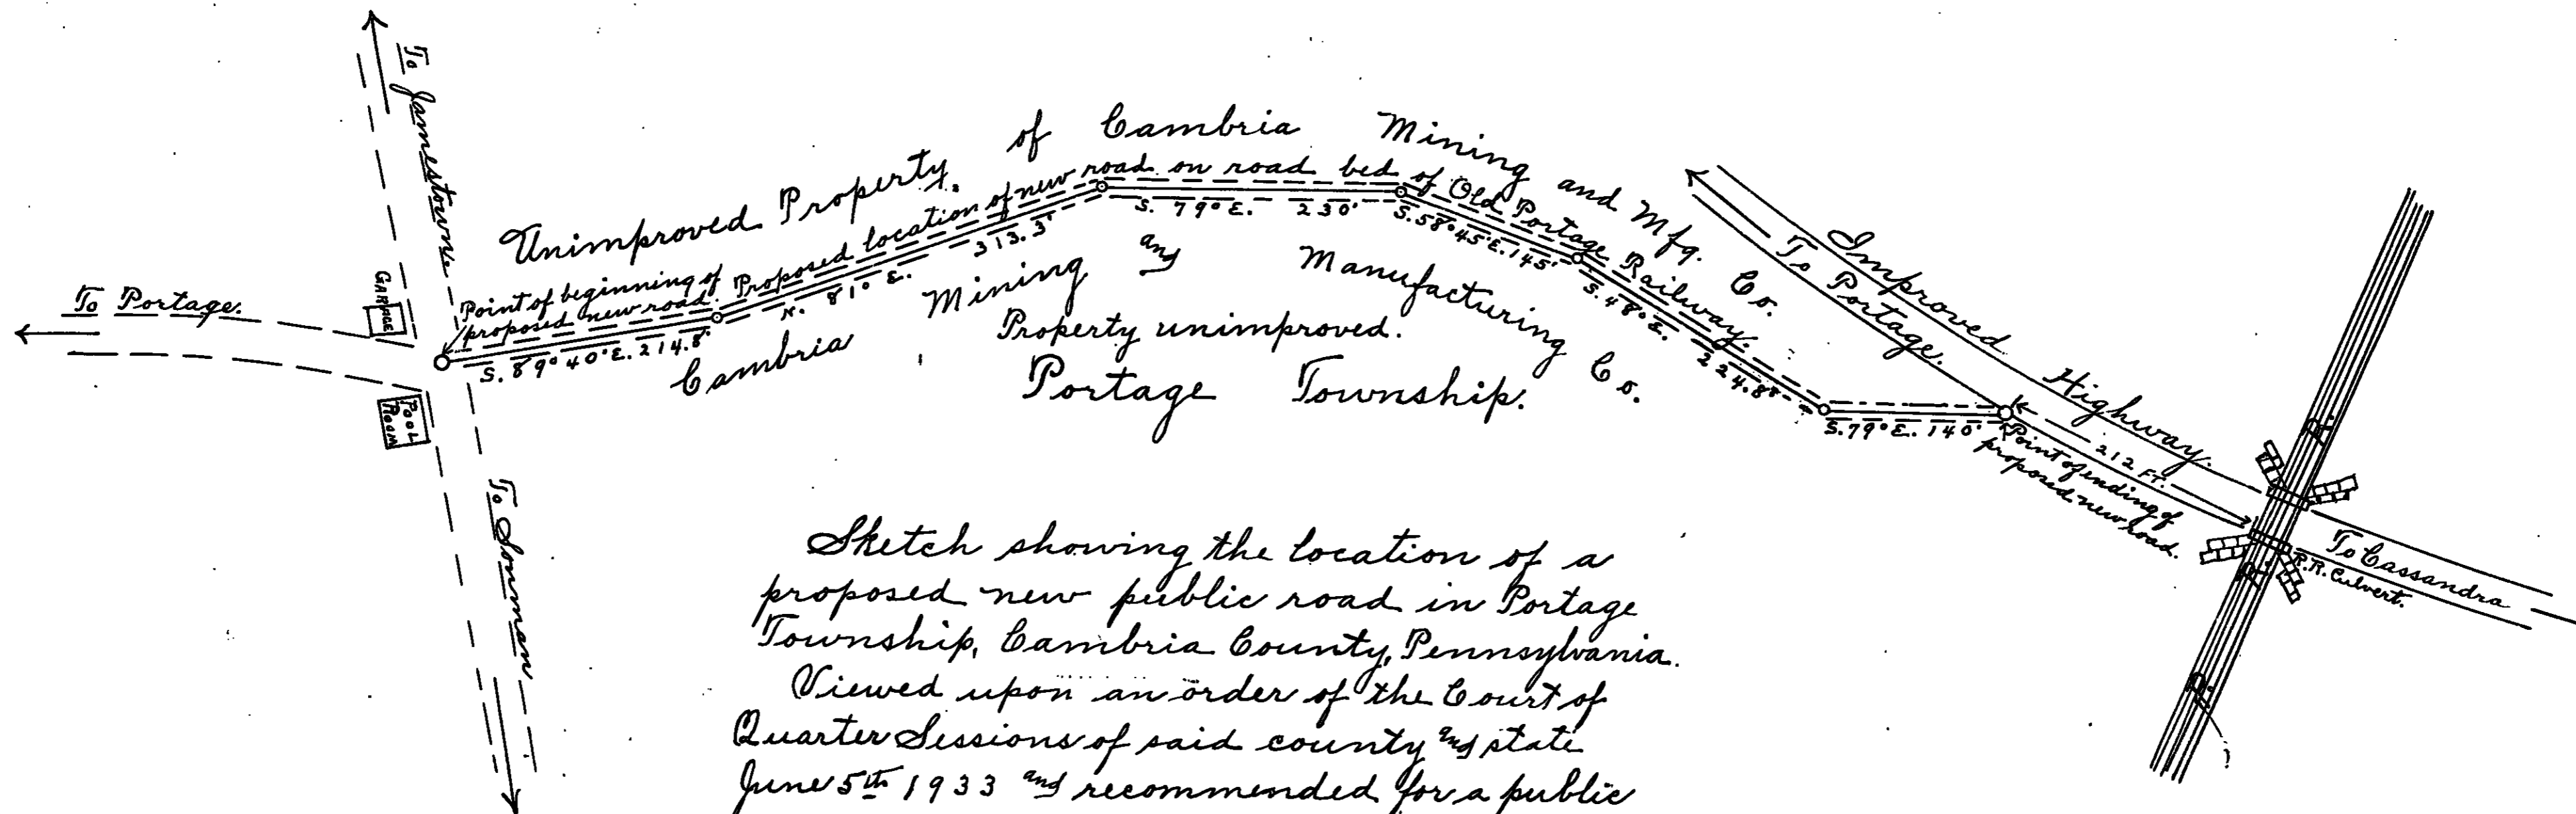 To Jamestown
To Portage.
GARAGE
POOL
ROOM
To Sonman
Unimproved Property, of Cambria Mining and Mfg. Co.
Point of beginning of
proposed new road.
Proposed location of new road on road bed of Old Portage Railway.
S. 89° 40' E. 214.8'
N. 81° E. 313.3'
S. 79° E. 230'
S. 58° 45' E. 145'
S. 48° E. 224.8'
S. 79° E. 140'
Cambria Mining and Manufacturing Co.
Property unimproved.
Portage Township.
To Portage.
Improved Highway.
212 FT.
Point of ending of
proposed new road.
To Cassandra
R.R. Culvert.
Sketch showing the location of a
proposed new public road in Portage
Township, Cambria County, Pennsylvania.
Viewed upon an order of the Court of
Quarter Sessions of said county and state
June 5th 1933 and recommended for a public